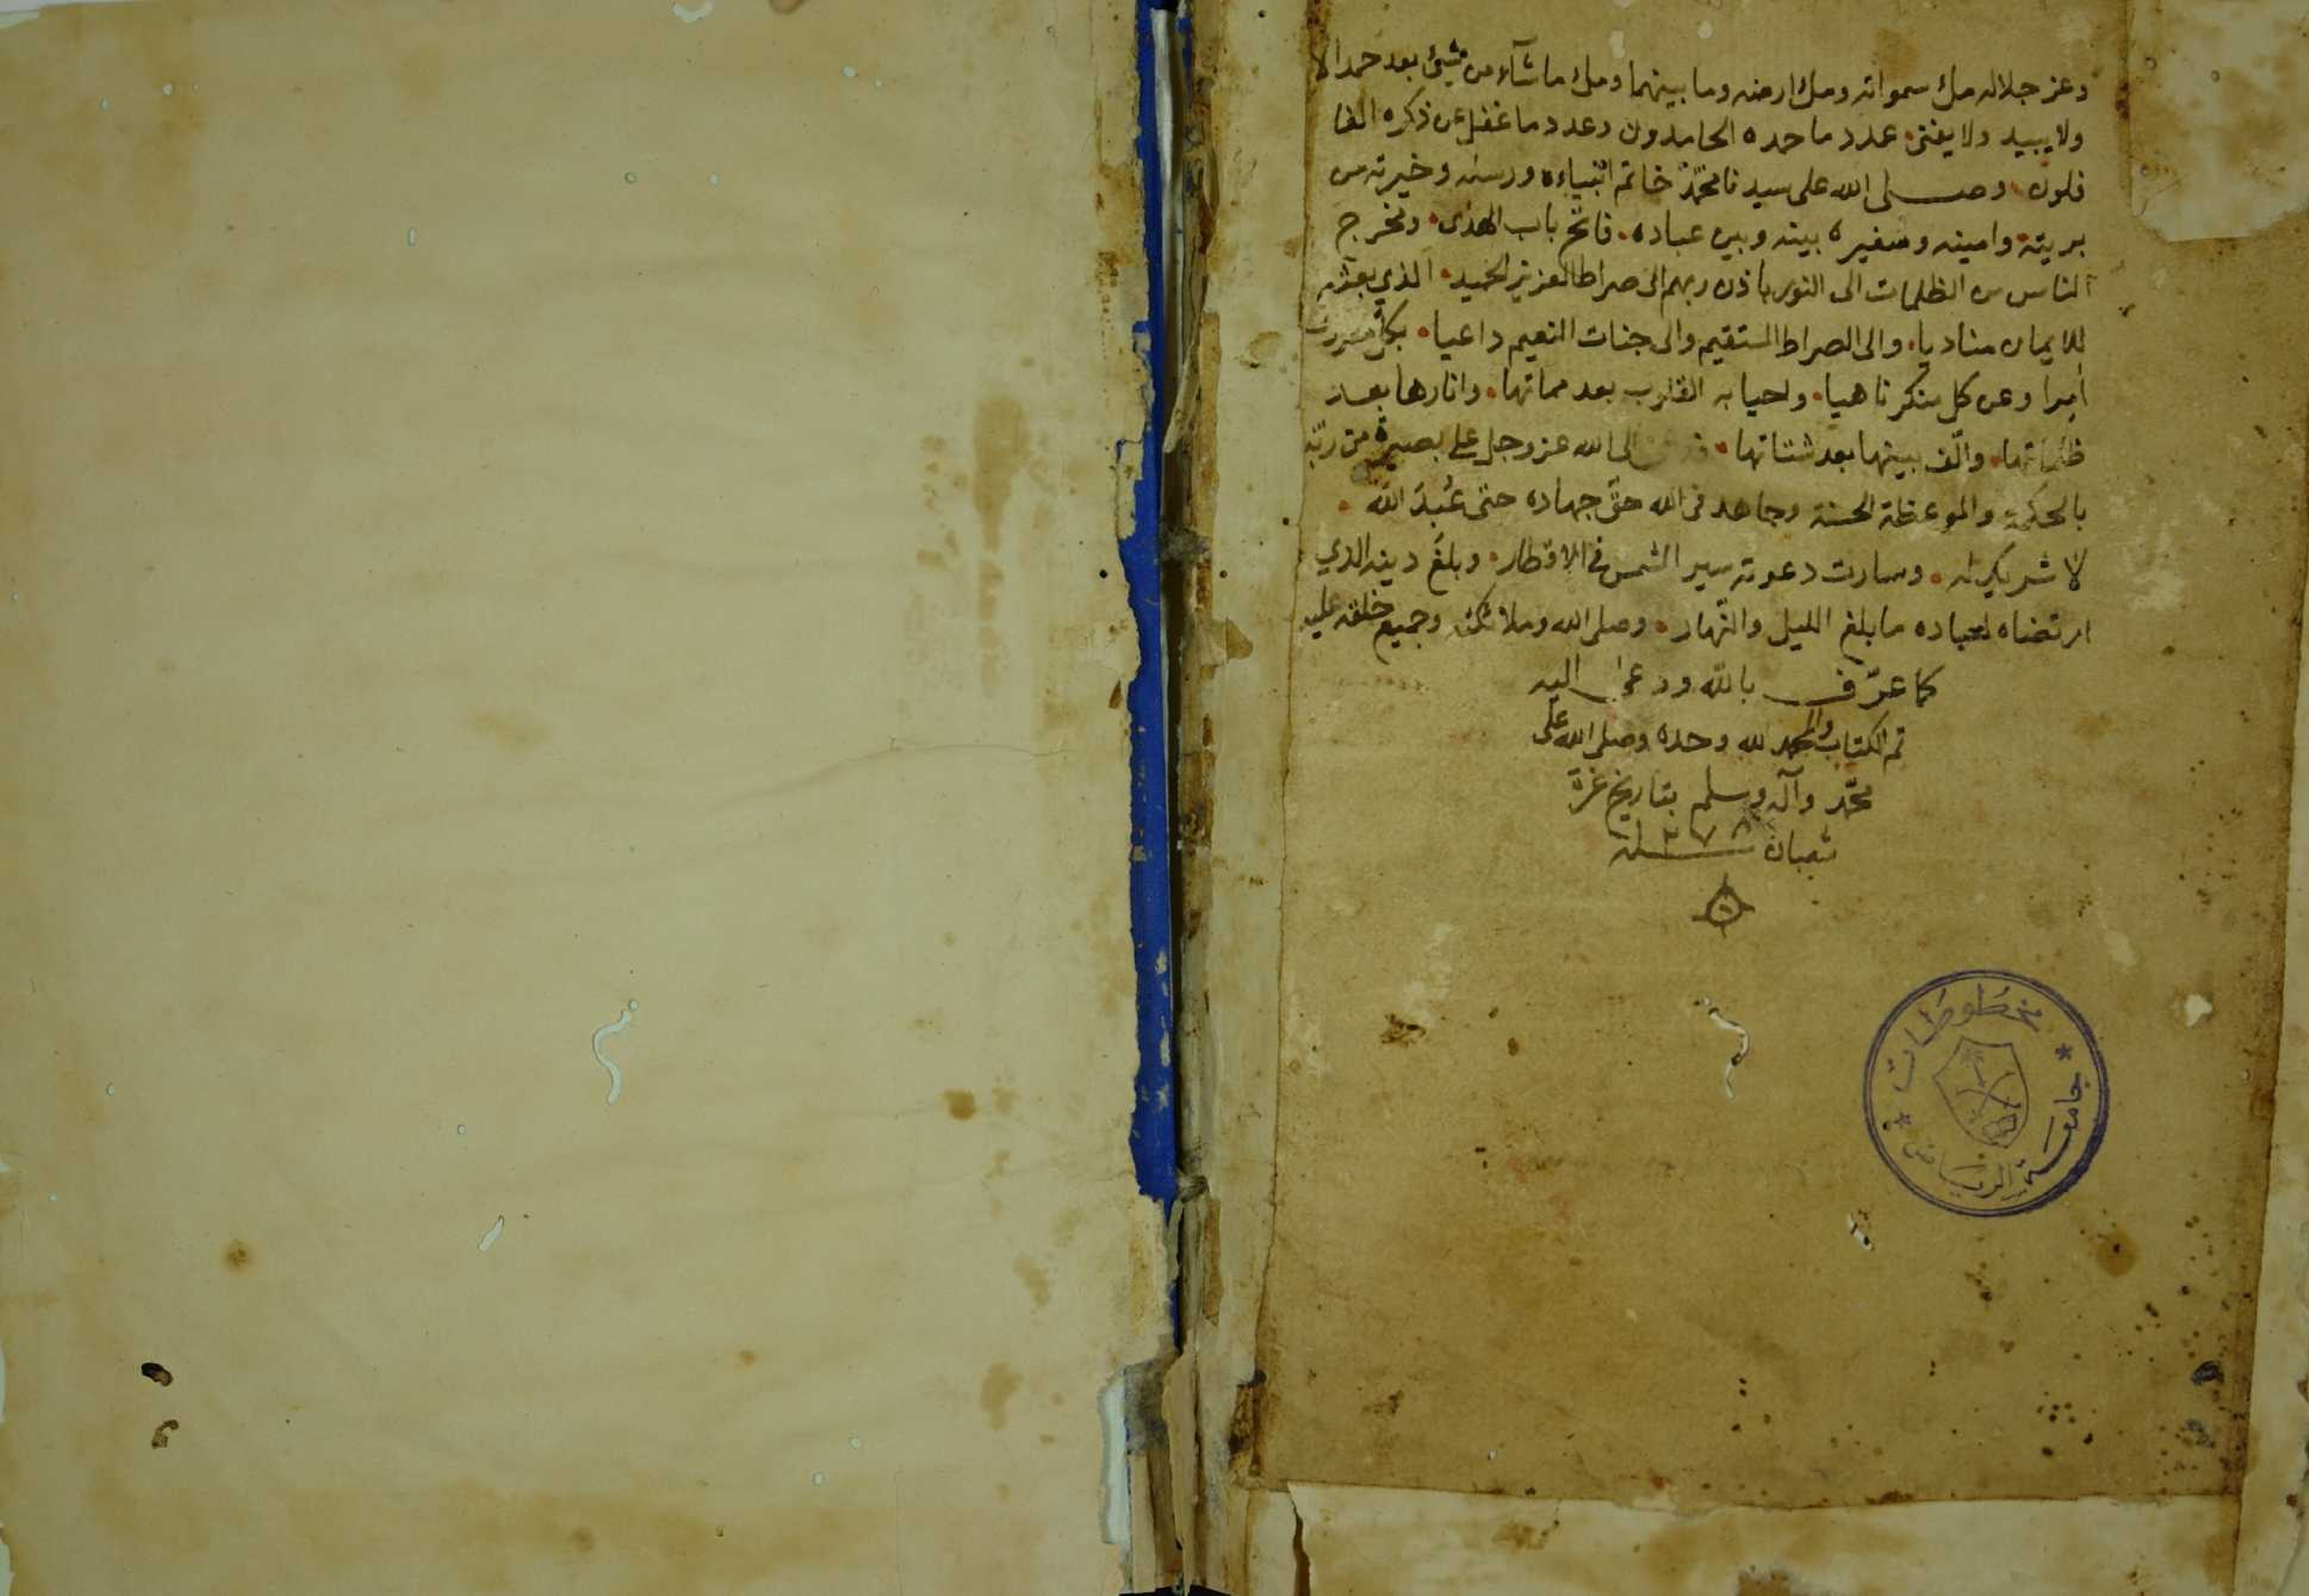 وعز جلاله ملء سمواته وملء ارضه وما بينهما وملء ماشآء من شيئ بعد حمدا لا
ولا يبيد ولا يفنى عدد ما حمده الحامدون وعدد ما غفل عن ذكره الغا
فلون وصلى الله على سيدنا محمّد خاتم انبياءه ورسله وخيرته من
بريته وامينه وسفيره بينه وبين عباده فاتح باب الهدى ومخرج
الناس من الظلمات الى النور باذن ربهم الى صراط العزيز الحميد الذي بعثه
للايمان مناديا والى الصراط المستقيم والى جنات النعيم داعيا بكل معروف
آمرا وعن كل منكر ناهيا واحيا به القلوب بعد مماتها وانارها بعد
ظلماتها والّف بينها بعد شتاتها الى الله عز وجل على بصيرة من ربّه
بالحكمة والموعظة الحسنة وجاهد في الله حقّ جهاده حتى عُبدَ الله
لا شريك له وسارت دعوته سير الشمس في الاقطار وبلغَ دينه الذي
ارتضاه لعباده ما بلغ الليل والنّهار وصلى الله وملائكته وجميع خلقه عليه
كما عرّف بالله ودعى اليه
تم الكتاب والحمد لله وحده وصلى الله على
محمّد وآله وسلم بتاريخ غرة
شعبان سنة
مخطوطات
جامعة الرياض